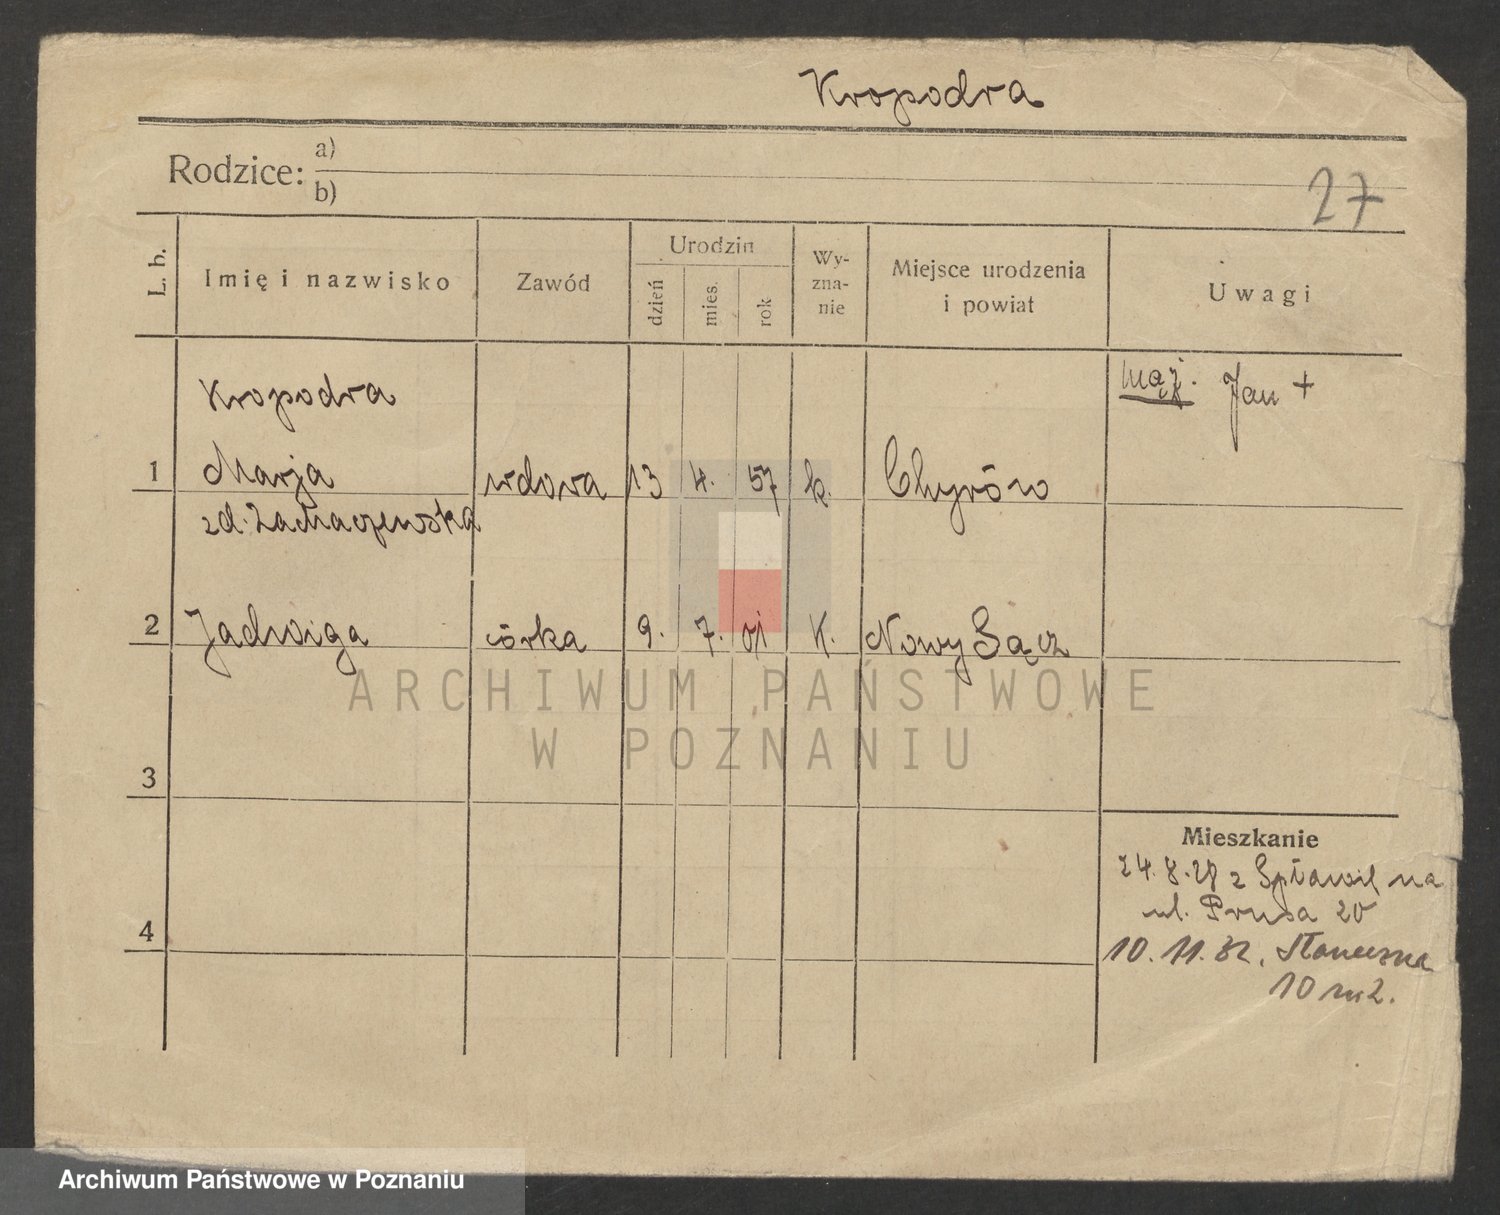 Kropodra
Rodzice: a)
b)
27
L. b.
Imię i nazwisko
Zawód
Urodzin
dzień
mies.
rok
Wy-
zna-
nie
Miejsce urodzenia
i powiat
Uwagi
Kropodra
mąż. Jan +
1 Marja wdowa 13 4. 57 k. Chyrów
zd.
2 Jadwiga córka 9. 7. K. Nowy Sącz
ARCHIWUM PAŃSTWOWE
W POZNANIU
3
Mieszkanie
24.8.28 z Spławil na
ul. Prusa 20
4
10.11.32. Słoneczna
10 m2.
Archiwum Państwowe w Poznaniu